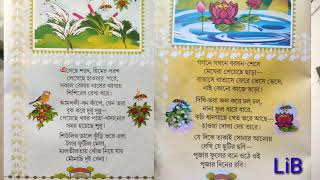 এসেছে শরৎ, হিমের পরশ
লেগেছে হাওয়ার 'পরে,
সকাল বেলায় ঘাসের আগায়
শিশিরের রেখা ধরে।
আমলকী-বন কাঁপে, যেন তার
বুক করে দুরু দুরু—
পেয়েছে খবর পাতা-খসানোর
সময় হয়েছে শুরু।
শিউলির ডালে কুঁড়ি ভরে এল,
টগর ফুটিল মেলা,
মালতীলতায় খোঁজ নিয়ে যায়
মৌমাছি দুই বেলা।
গগনে গগনে বরষন-শেষে
মেঘেরা পেয়েছে ছাড়া—
বাতাসে বাতাসে ফেরে ভেসে ভেসে,
নাই কোনো কাজে তাড়া।
দিঘি-ভরা জল করে ঢল ঢল,
নানা ফুল ধারে ধারে,
কচি ধানগাছে খেত ভরে আছে—
হাওয়া দোলা দেয় তারে।
যে দিকে তাকাই সোনার আলোয়
দেখি যে ছুটির ছবি—
পূজার ফুলের বনে ওঠে ওই
পূজার দিনের রবি।
LiB